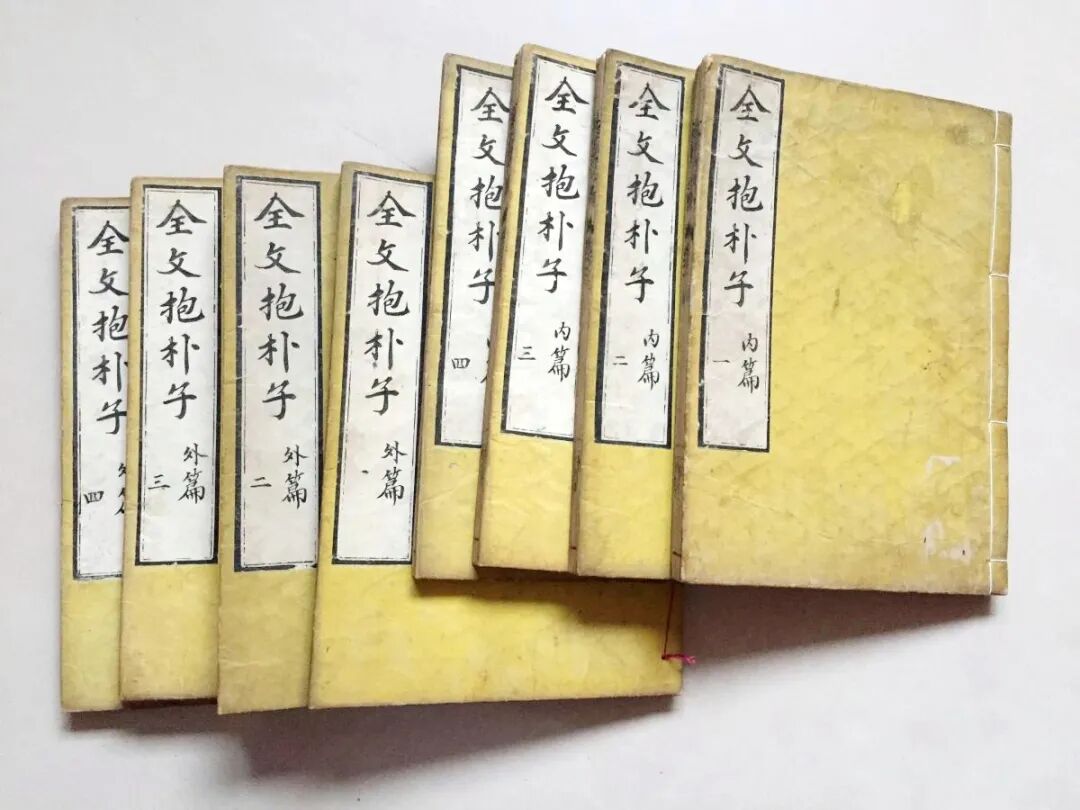 全文抱朴子
内篇
一
全文抱朴子
内篇
二
全文抱朴子
内篇
三
全文抱朴子
四
全文抱朴子
外篇
全文抱朴子
外篇
二
全文抱朴子
外篇
三
全文抱朴子
外篇
四